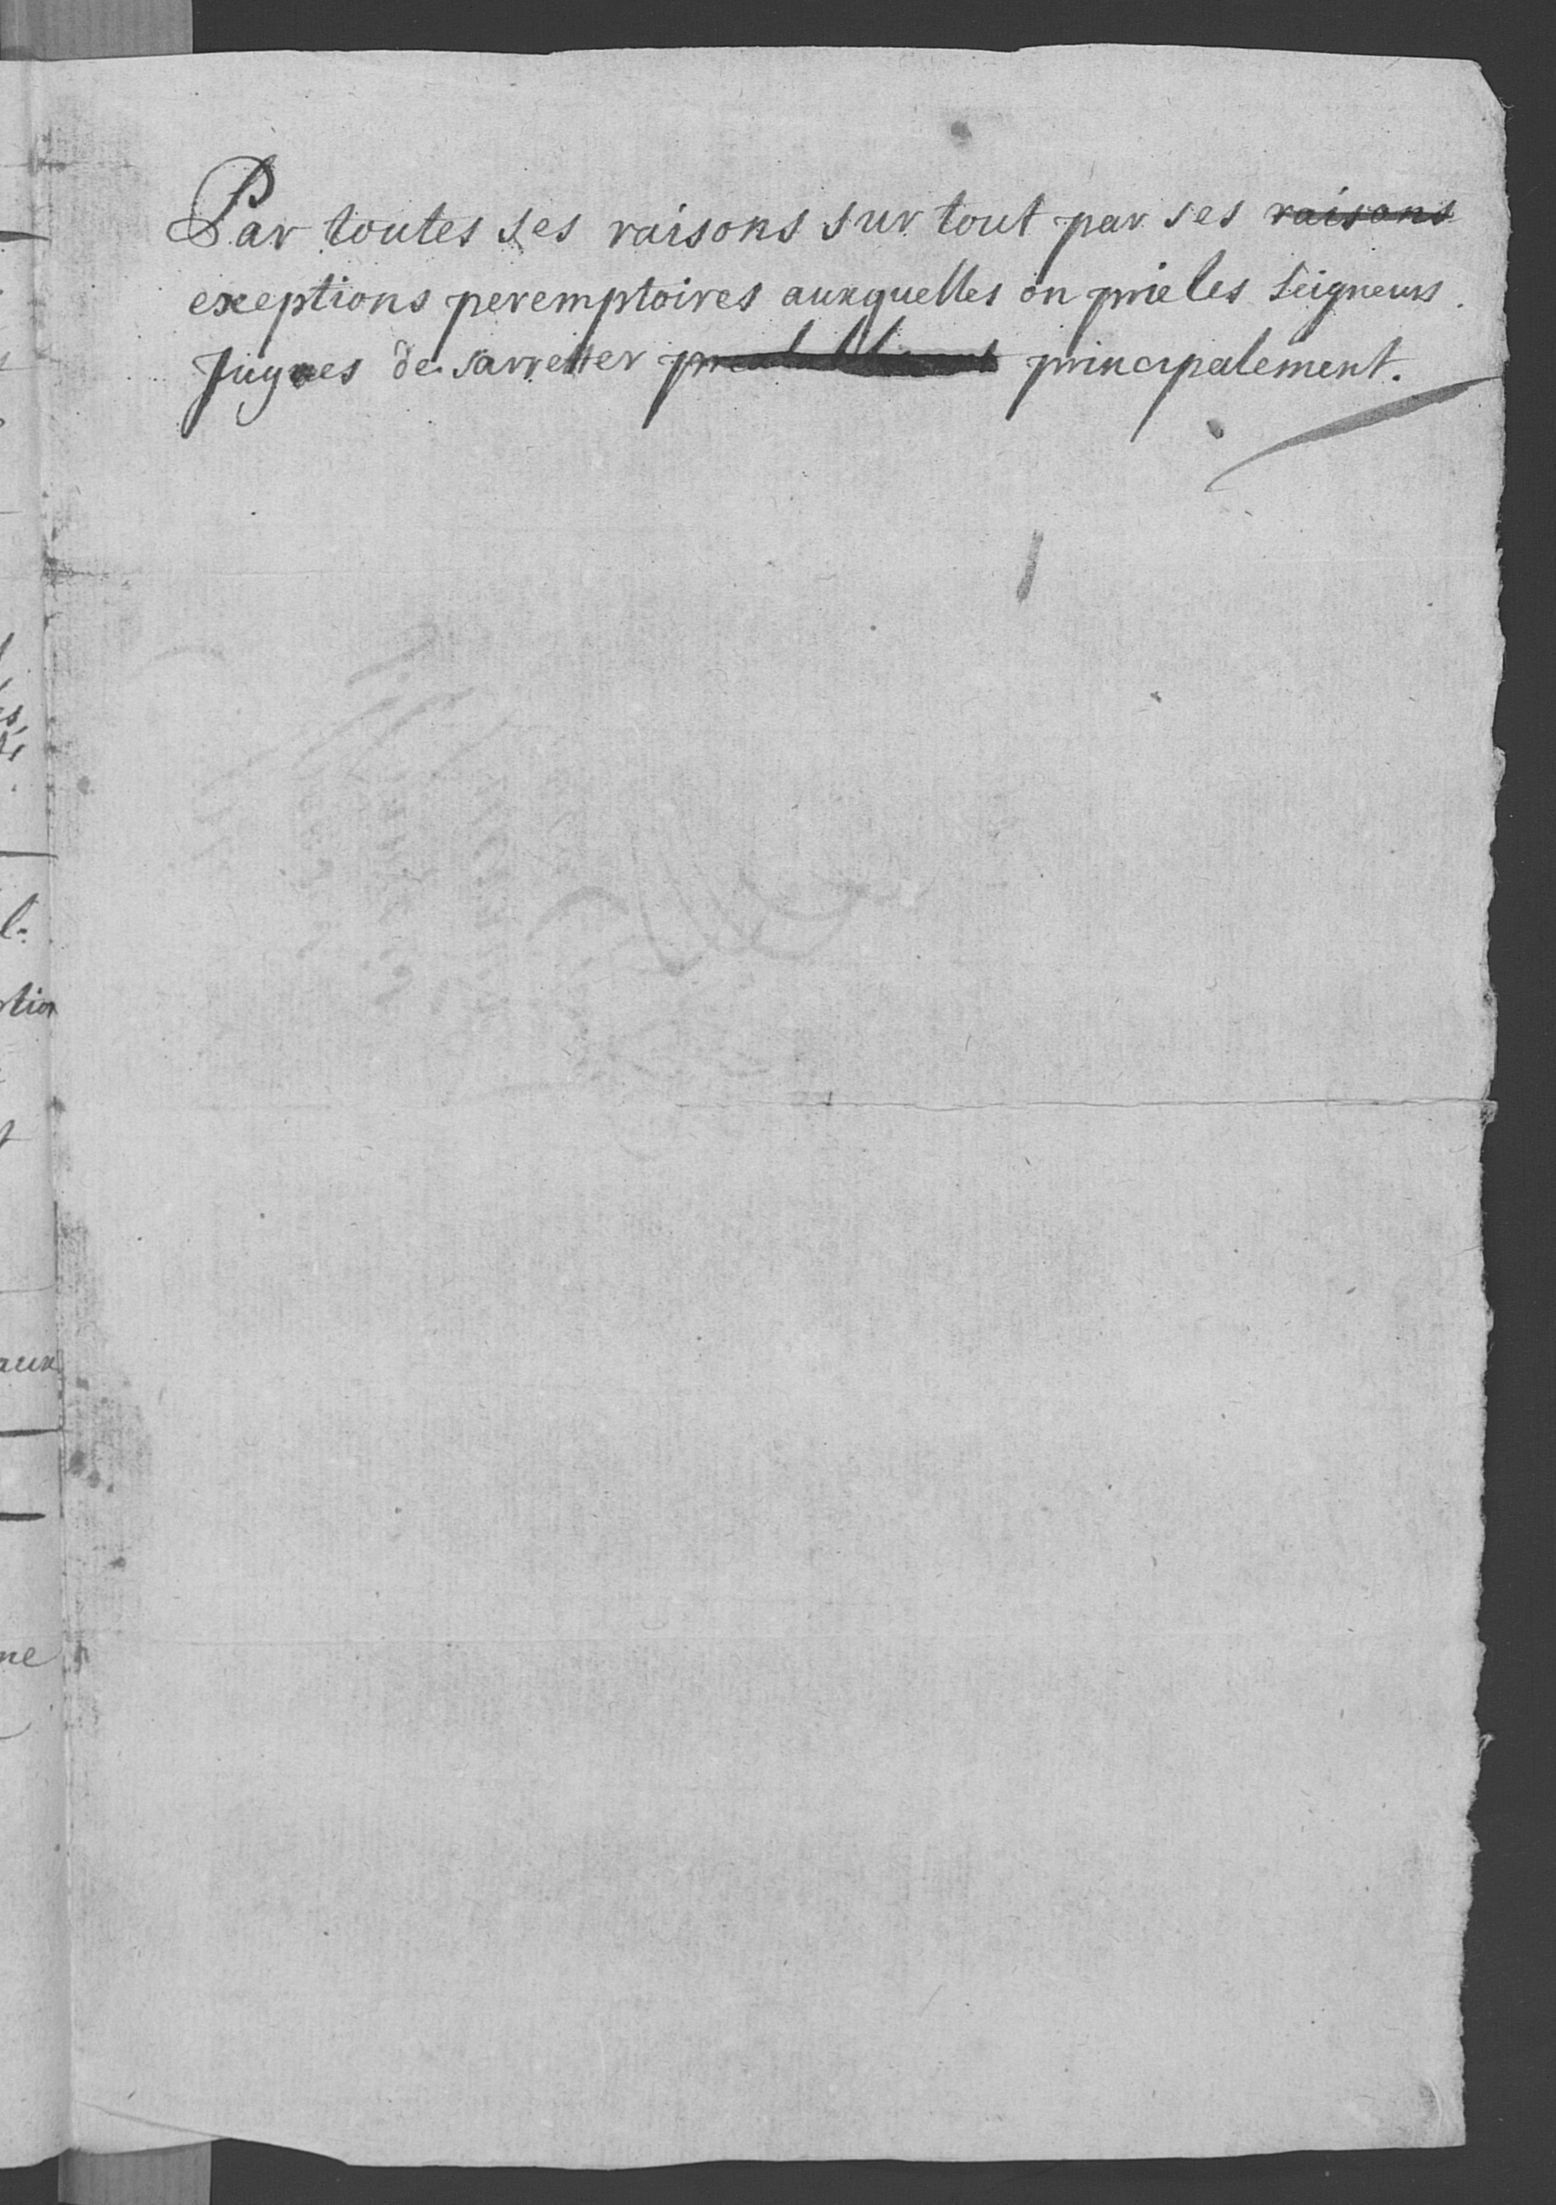 Par toutes ses raisons sur tout par ses raisons
exeptions peremptoires auxquelles on prie les Seigneurs
Juges de sarretter principalement.
l.
ption
aux
ne